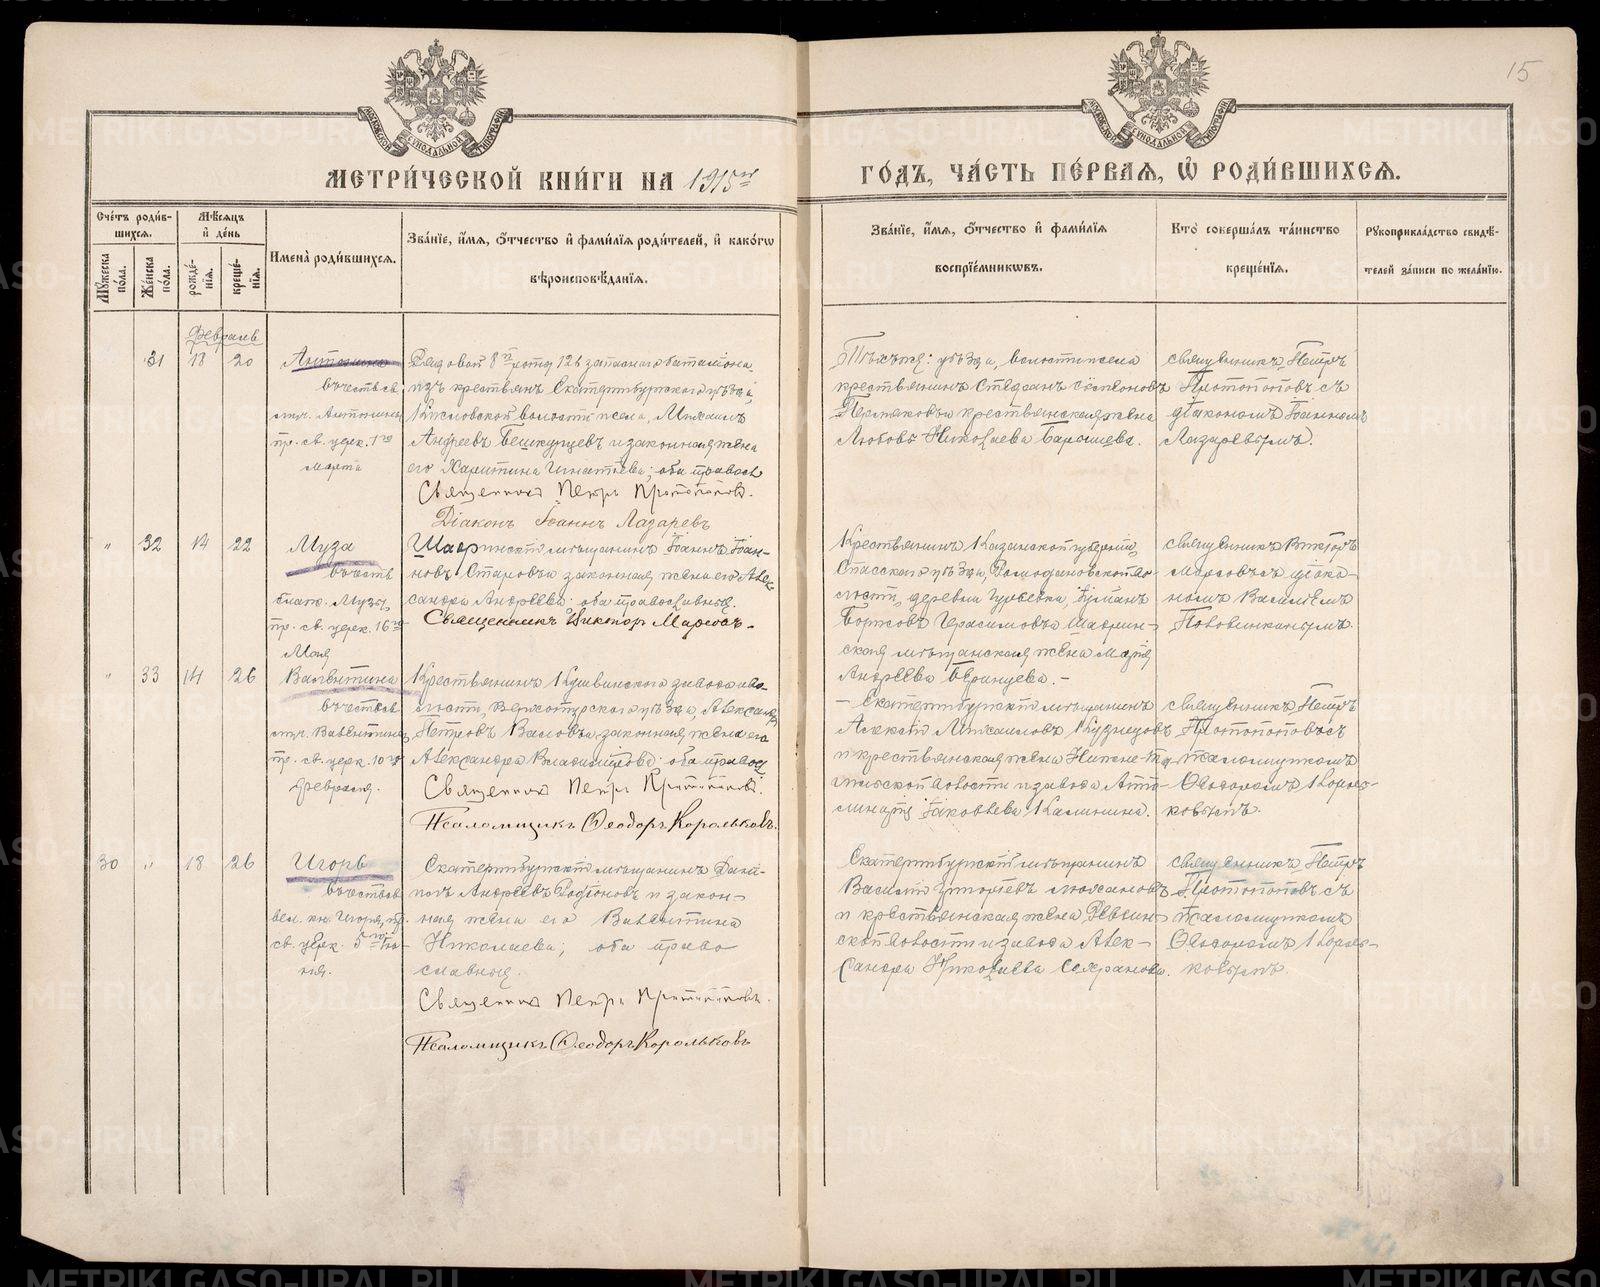 15
МОСКОВСКОЙ СѴНОДАЛЬНОЙ ТИПОГРАФІИ
МОСКОВСКОЙ СѴНОДАЛЬНОЙ ТИПОГРАФІИ
МЕТРИ́ЧЕСКОЙ КНИ́ГИ НА 1915 г
ГО́ДЪ, ЧА́СТЬ ПЕ́РВАЯ, Ѽ РОДИ́ВШИХСЯ.
Сче́тъ роди́в-
шихся.
Мѣ́сяцъ
и҆ де́нь
Мꙋ́жеска по́ла.
Же́нска по́ла.
рожде́-нїя.
креще́-нїя.
И҆мена̀ роди́вшихся.
Зва́нїе, и҆́мя, ѻ҆́тчество и҆ фами́лїя роди́телей, и҆ како́гѡ
вѣроисповѣ́данїя.
Зва́нїе, и҆́мя, ѻ҆́тчество и҆ фами́лїя
воспрїе́мникѡвъ.
Кто̀ соверша́лъ та́инство
креще́нїя.
Рꙋкоприкла́дство свидѣ́-
телей за́писи по жела́нїю.
Февраль
31 18 20
Антонина
въ честь св.
муч. Антонины
пр. св. церк. 1го
марта
Рядовой 8й роты 126 запаснаго баталіона,
изъ крестьянъ Екатеринбургскаго уѣзда,
волости и села, Михаилъ
Андреевъ и законная жена
его Харитина Игнатіева; оба правосл.
Священникъ Петръ Протопоповъ.
Діаконъ Іоаннъ Лазаревъ
уѣзда, волости и села
крестьянинъ Стефанъ
и крестьянская жена
Любовь Николаева
священникъ Петръ
Протопоповъ съ
діакономъ Іоанномъ
Лазаревымъ.
" 32 14 22
Муза
въ честь
блаж. Музы,
пр. св. церк. 16го
Мая
Шадринскій мѣщанинъ Іоаннъ Іоан-
новъ Старовъ и законная жена его Алек-
сандра Андреева; оба православные.
Священникъ Викторъ Марсовъ.
Крестьянинъ Казанской губерніи,
Спасскаго уѣзда, во-
лости, деревни Гурьевка,
Борисовъ Герасимовъ и Шадрин-
ская мѣщанская жена Марія
Андреева
священникъ Викторъ
Марсовъ съ діако-
номъ Василіемъ
" 33 14 26
Валентина
въ честь св.
муч. Валентины,
пр. св. церк. 10го
февраля.
Крестьянинъ Кушвинскаго завода и во-
лости, Верхотурскаго уѣзда, Александръ
Петровъ и законная жена его
Александра Владимірова; оба правосл.
Священникъ Петръ Протопоповъ.
Псаломщикъ Ѳеодоръ Корольковъ.
– Екатеринбургскій мѣщанинъ
Алексій Михаиловъ Кузнецовъ
и крестьянская жена Нижне-Та-
гильской волости и завода Апол-
линарія Іаковлева Калинина.
священникъ Петръ
Протопоповъ съ
псаломщикомъ
Ѳеодоромъ Король-
ковымъ.
30 " 18 26
Игорь
въ честь св.
вел. кн. Игоря, пр.
св. церк. 5го Ію-
ня.
Екатеринбургскій мѣщанинъ
Андреевъ Родіоновъ и закон-
ная жена его Валентина
Николаева; оба право-
славные.
Священникъ Петръ Протопоповъ.
Псаломщикъ Ѳеодоръ Корольковъ
Екатеринбургскій мѣщанинъ
Василій
и крестьянская жена Ревдин-
ской волости и завода Алек-
сандра Николаева
священникъ Петръ
Протопоповъ съ
псаломщикомъ
Ѳеодоромъ Король-
ковымъ.
METRIKI.GASO-URAL.RU